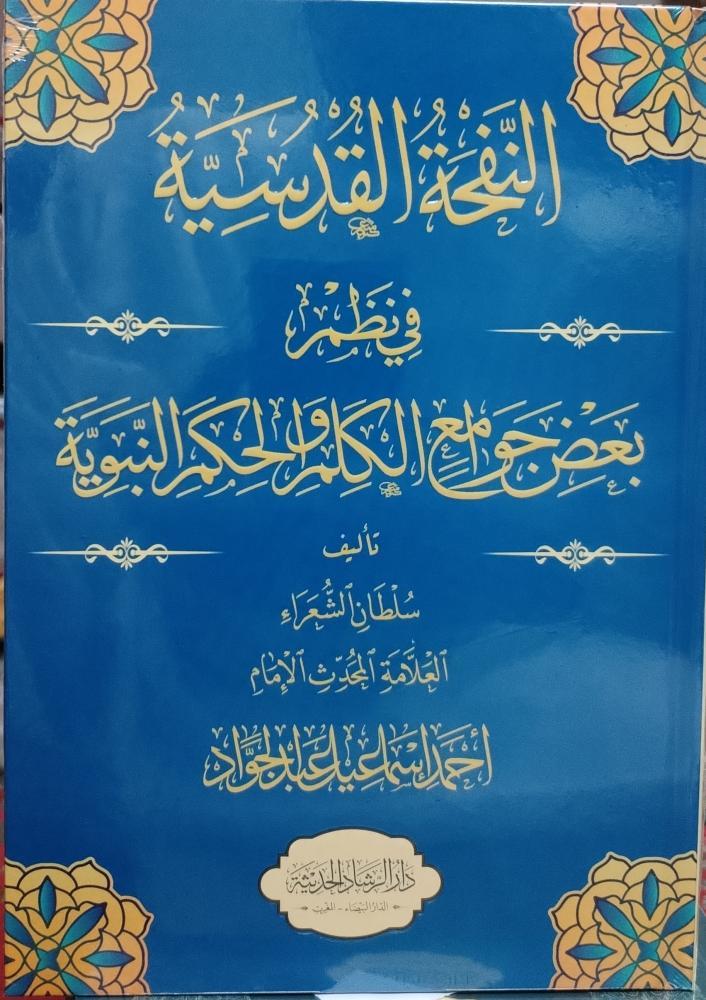 النَّفْحَةُ القُدُسِيَّةُ
فِي نَظْمِ
بَعْضِ جَوَامِعِ الكَلِمِ وَالحِكَمِ النَّبَوِيَّةِ
تأليف
سُلْطَانِ الشُّعَرَاءِ
العَلَّامَةِ المُحَدِّثِ الإِمَامِ
أحمَد إسْمَاعِيل عَبد الجَوَّاد
دَارُ الرَّشَادِ الحَدِيثَة
الدار البيضاء - المغرب